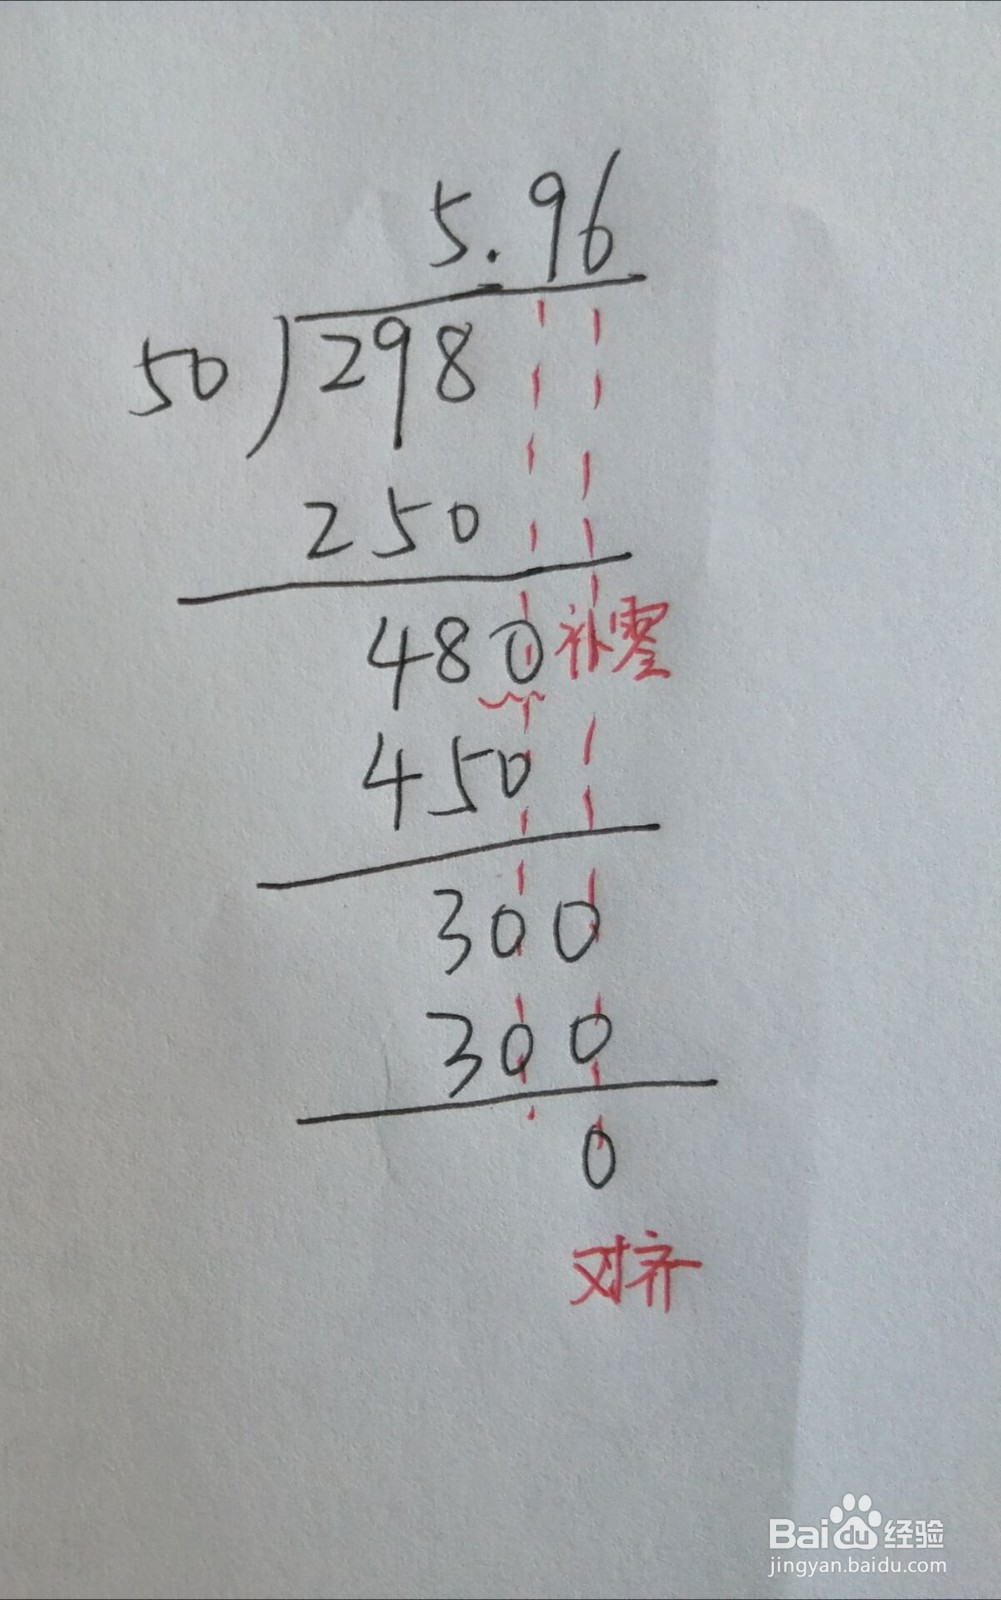 5.96
50)298
250
480 补零
450
300
300
0
对齐
Baidu经验
jingyan.baidu.com